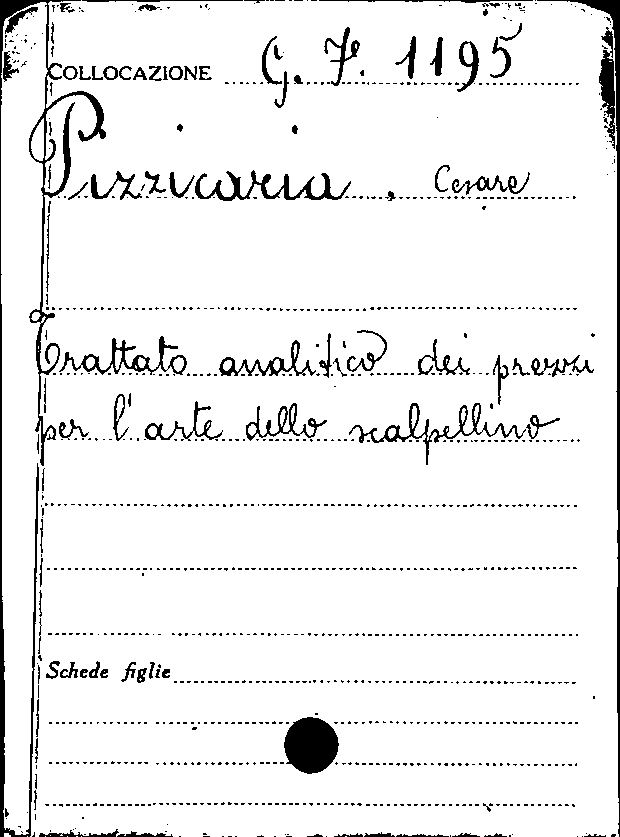 COLLOCAZIONE G. F. 1195
Pizzicaria, Cesare
Trattato analitico dei prezzi
per l'arte dello scalpellino
Schede figlie